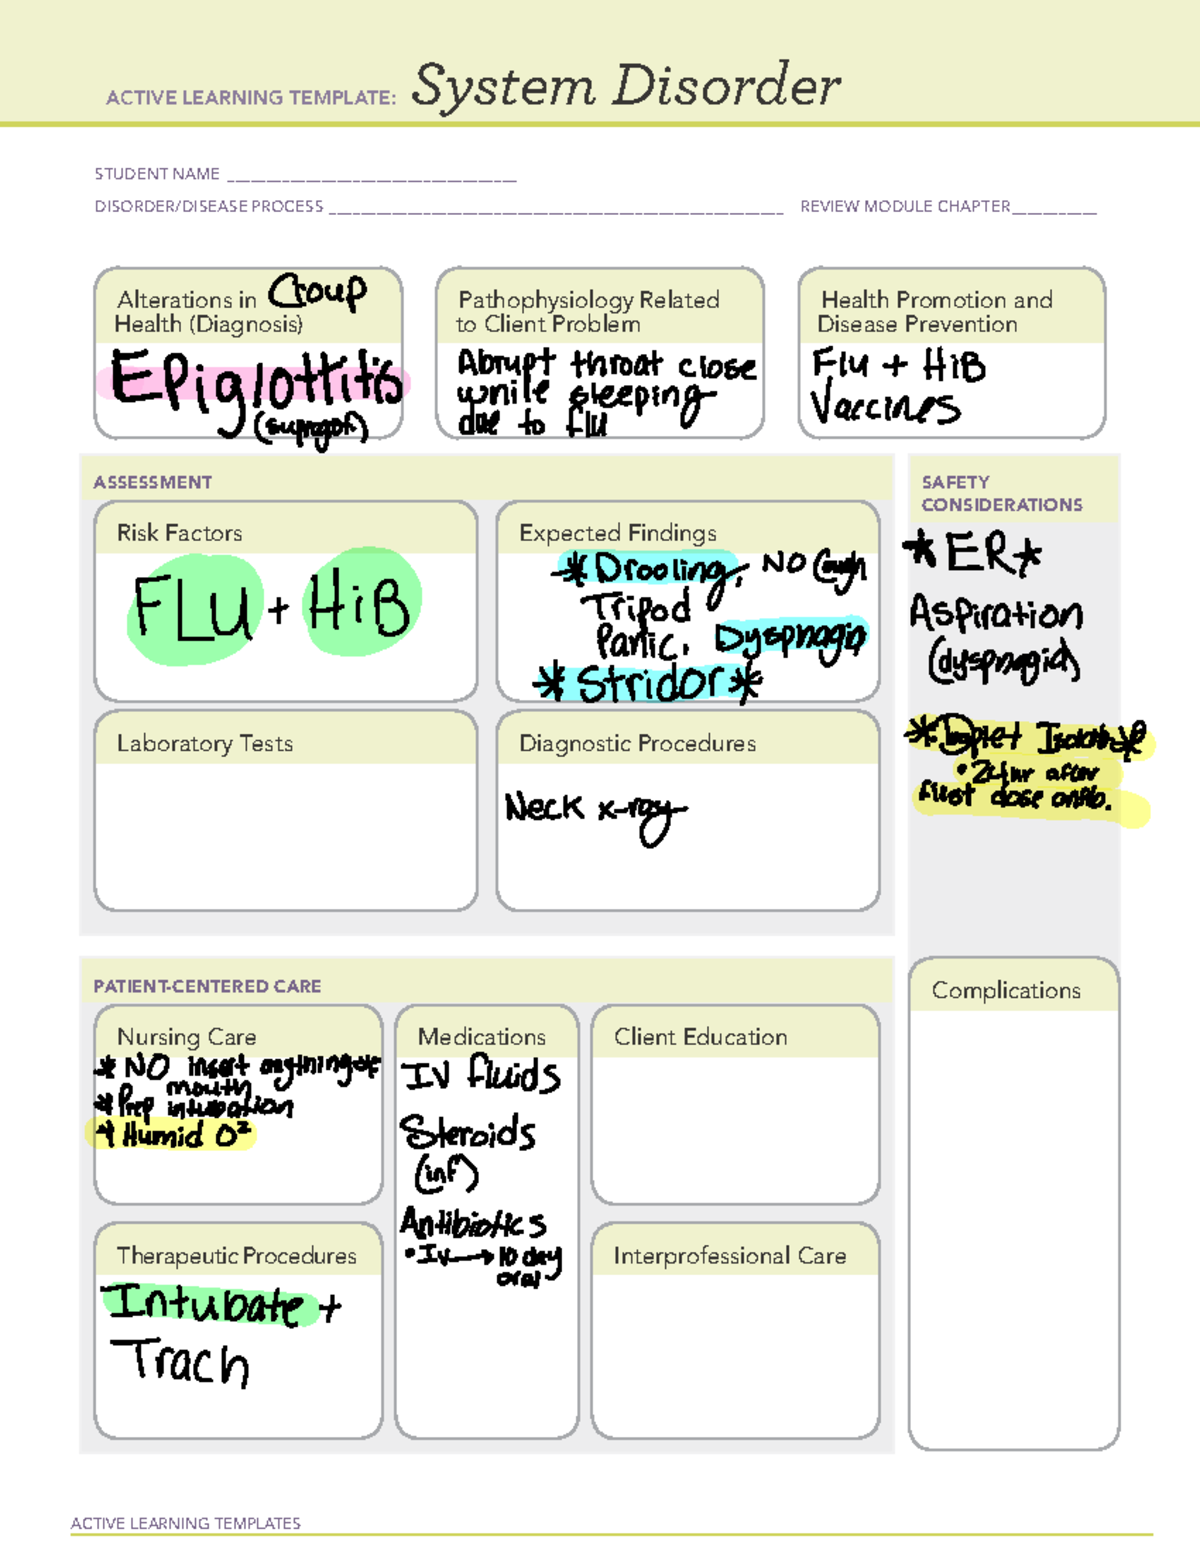 ACTIVE LEARNING TEMPLATE: System Disorder
STUDENT NAME
DISORDER/DISEASE PROCESS REVIEW MODULE CHAPTER
Alterations in Croup
Health (Diagnosis)
Epiglottitis
Pathophysiology Related
to Client Problem
Abrupt throat close
while sleeping
due to flu
Health Promotion and
Disease Prevention
Flu + HiB
Vaccines
ASSESSMENT
Risk Factors
FLu + HiB
Expected Findings
*Drooling, NO Cough
Tripod
Panic, Dysphagia
*Stridor*
Laboratory Tests
Diagnostic Procedures
Neck x-ray
SAFETY
CONSIDERATIONS
*ER*
Aspiration
(dysphagia)
*Droplet Isolation*
• 24hr after
first dose antib.
PATIENT-CENTERED CARE
Nursing Care
* NO insert anything*
mouth
*Prep intubation
* Humid O²
Medications
IV fluids
Steroids
(inf)
Antibiotics
• IV → 10 day
oral
Client Education
Therapeutic Procedures
Intubate +
Trach
Interprofessional Care
Complications
ACTIVE LEARNING TEMPLATES